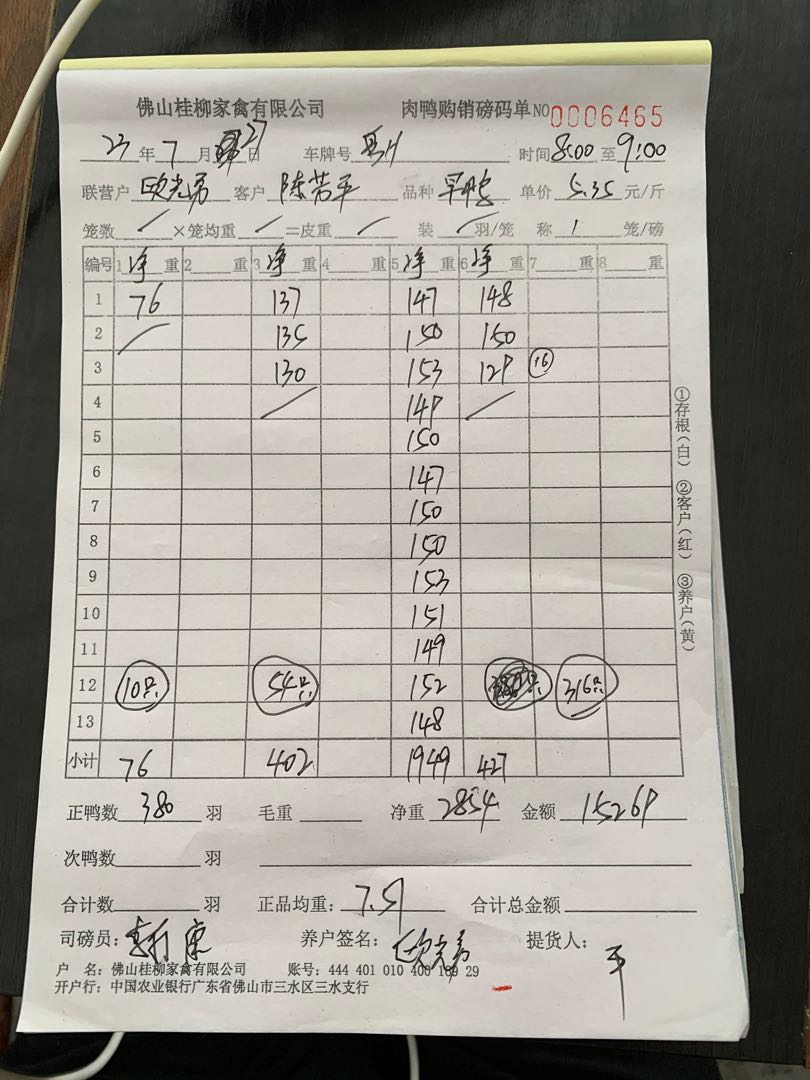 佛山桂柳家禽有限公司 肉鸭购销磅码单 NO 0006465
23 年 7 月 27 日 车牌号 时间 8:00 至 9:00
联营户 欧光弟 客户 陈芳平 品种 单价 5.35 元/斤
笼数 / ×笼均重 / =皮重 / 装 / 羽/笼 称 1 笼/磅
编号 1 净 重 2 重 3 净 重 4 重 5 净 重 6 净 重 7 重 8 重
1 76 137 147 148
2 / 135 150 150
3 130 153 129 16
4 / 149 /
5 150
6 147
7 150
8 150
9 153
10 151
11 149
12 10只 54只 152 316只
13 148
小计 76 402 1949 427
正鸭数 380 羽 毛重 净重 2854 金额 15269
次鸭数 羽
合计数 羽 正品均重: 7.51 合计总金额
司磅员: 养户签名: 欧光弟 提货人: 平
户 名: 佛山桂柳家禽有限公司 账号: 444 401 010 400 189 29
开户行: 中国农业银行广东省佛山市三水区三水支行
①存根(白) ②客户(红) ③养户(黄)